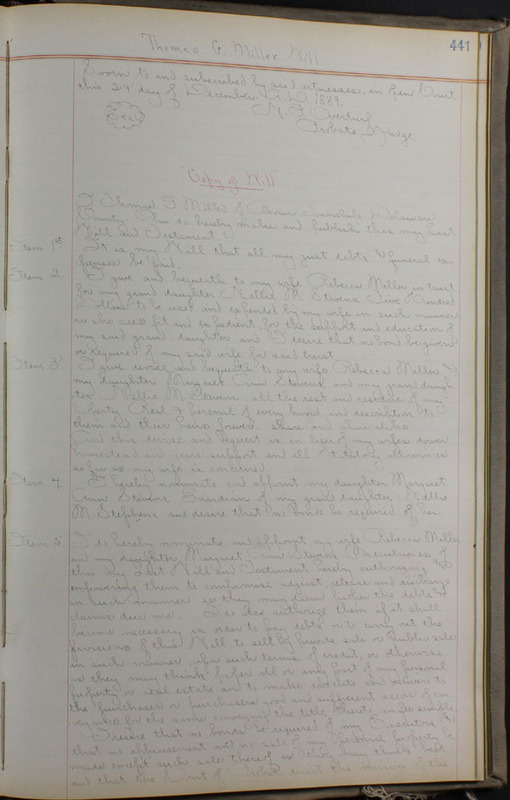 441
Thomas G. Miller Will
Sworn to and subscribed by said witnesses, in Open Court
this 24 day of December A.D. 1889.
Seal
Probate Judge
"Copy of Will"
I Thomas G Miller of Township Delaware
County, Ohio do hereby make and publish this my Last
Will and Testament.
Item 1st It is my Will that all my just debts & funeral ex-
penses be paid.
Item 2. I give and bequeath to my wife Rebecca Miller in trust
for my grand daughter Nellie M. Stevens Five Hundred
Dollars to be used and expended by my wife in such manner
as she sees fit and expedient for the support and education of
my said grand daughter and I desire that no bond be given
or required of my said wife for said trust.
Item 3d I give devise and bequeath to my wife Rebecca Miller &
my daughter Margaret Ann Stevens and my grand daugh-
ter Nellie M Stevens all the rest and residue of my
property Real & personal of every kind and description to
them and their heirs forever share and share alike
And this devise and bequest is in lieu of my wifes dower
homestead and years support and all statutory allowances
so far as my wife is concerned.
Item 4. I hereby nominate and appoint my daughter Margaret
Ann Stevens Guardian of my grand daughter Nellie
M. Stephens and desire that no Bond be required of her.
Item 5 I do hereby nominate and appoint my wife Rebecca Miller
and my daughter Margaret Ann Stevens Executrixes of
this my Last Will and Testament hereby authorizing &
empowering them to compromise adjust, release and discharge
in such manner as they may deem proper the debts &
claims due me. I do also authorize them if it shall
become necessary in order to pay debts or to carry out the
provisions of this Will to sell by private sale or public sale
in such manner, upon such terms of credit, or otherwise
as they may think proper all or any part of my personal
property or real estate and to make execute and deliver to
the purchaser or purchasers good and sufficient deeds of con-
veyance for the same conveying the title thereto in fee simple.
I desire that no bonds be required of my Executors
that no appraisement and no sale of my personal property be
made except such sale thereof as they may think best
and that the Court of Probate direct the omission of the